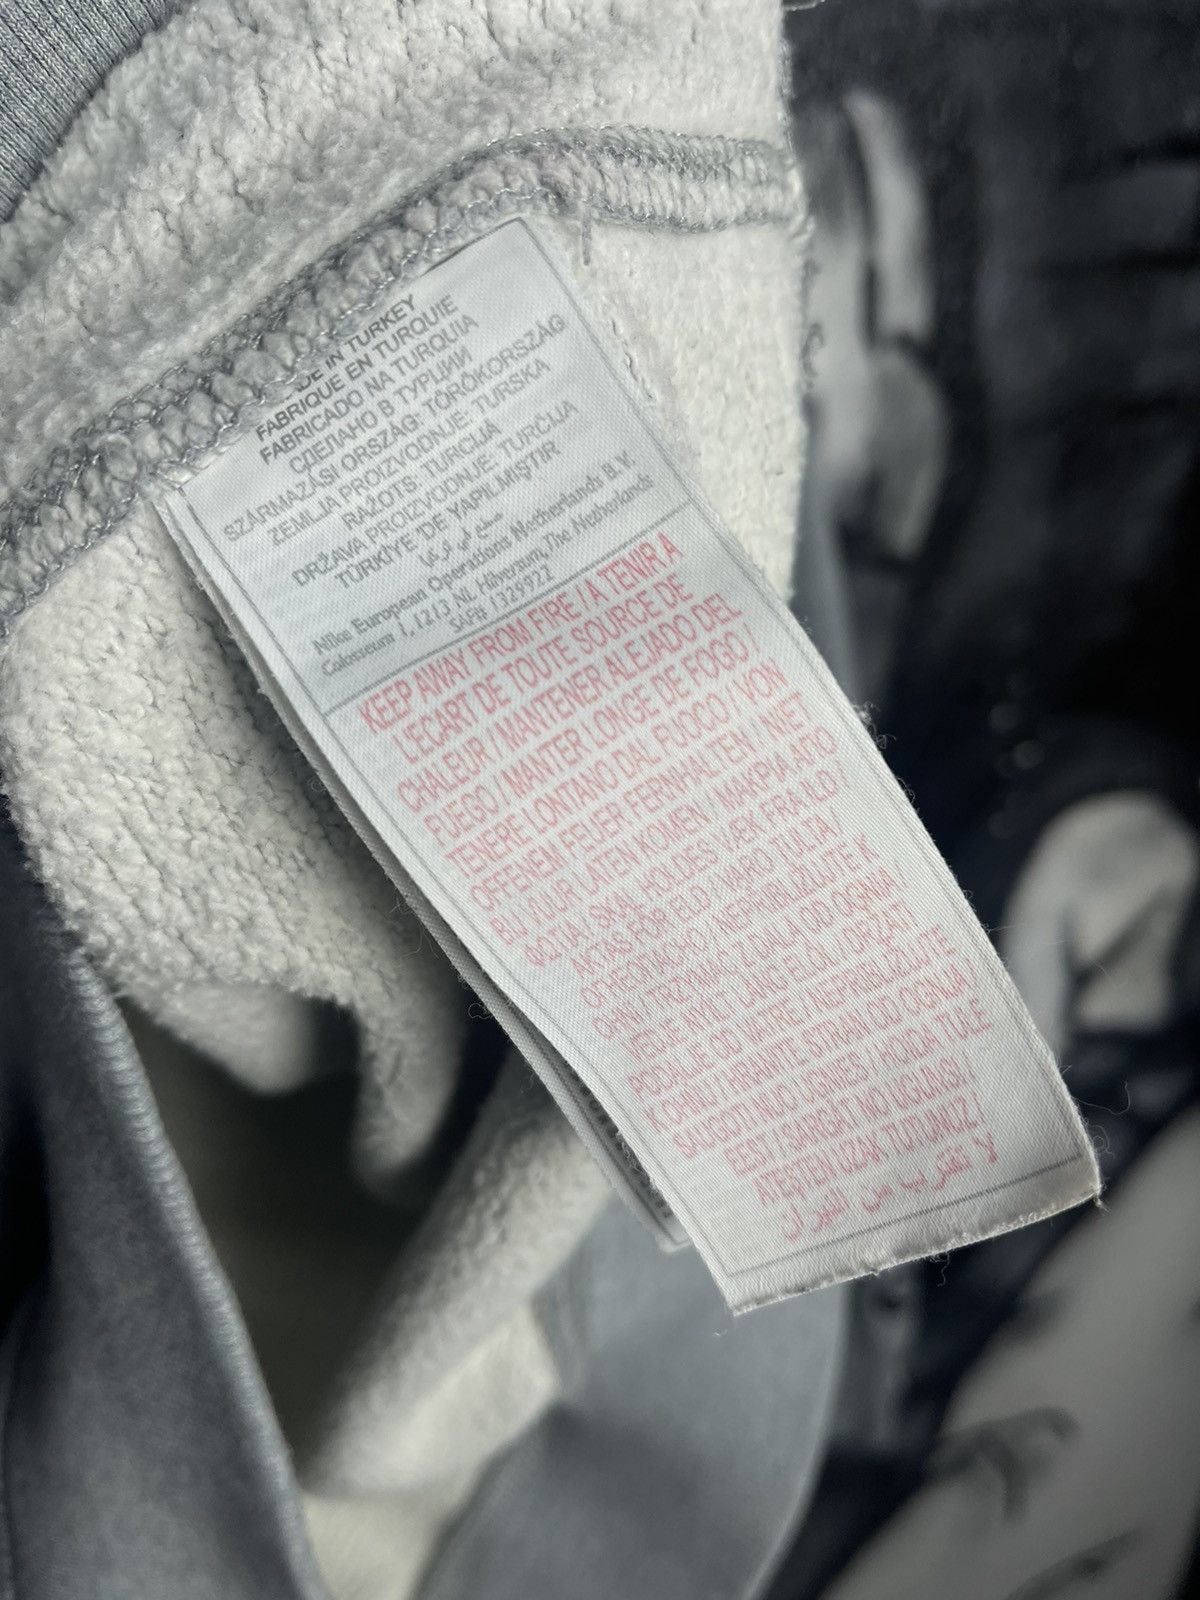 DE IN TURKEY
FABRIQUE EN TURQUIE
FABRICADO NA TURQUIA
СДЕЛАНО В ТУРЦИИ
SZÁRMAZÁSI ORSZÁG: TÖRÖKORSZÁG
ZEMLJA PROIZVODNJE: TURSKA
RAŽOTS: TURCIJĀ
DRŽAVA PROIZVODNJE: TURČIJA
TÜRKİYE'DE YAPILMIŞTIR
صنع في تركيا
Nike European Operations Netherlands B.V.
Colosseum 1, 1213 NL Hilversum, The Netherlands
SAF# 1329922
KEEP AWAY FROM FIRE / A TENIR A
L'ECART DE TOUTE SOURCE DE
CHALEUR / MANTENER ALEJADO DEL
FUEGO / MANTER LONGE DE FOGO /
TENERE LONTANO DAL FUOCO / VON
OFFENEM FEUER FERNHALTEN / NIET
BIJ VUUR LATEN KOMEN / ΜΑΚΡΙΑ ΑΠΟ
ΦΩΤΙΑ / SKAL HOLDES VÆK FRA ILD /
AKTAS FÖR ELD / VARO TULTA /
ОГНЕОПАСНО: НЕ ПРИБЛИЖАТЬ К
ОГНЮ / TRZYMAĆ Z DALA OD OGNIA /
VÉDJE NYÍLT LÁNG ELŐL / DRŽATI
PODALJE OD VATRE / NEPRIBLIŽUJTE
K OHNU / HRANITE STRAN OD OGNJA /
SAUGOTI NUO UGNIES / HOIDA TULE
EEST / SARGĀT NO UGUNS /
ATEŞTEN UZAK TUTUNUZ /
لا تقترب من النيران